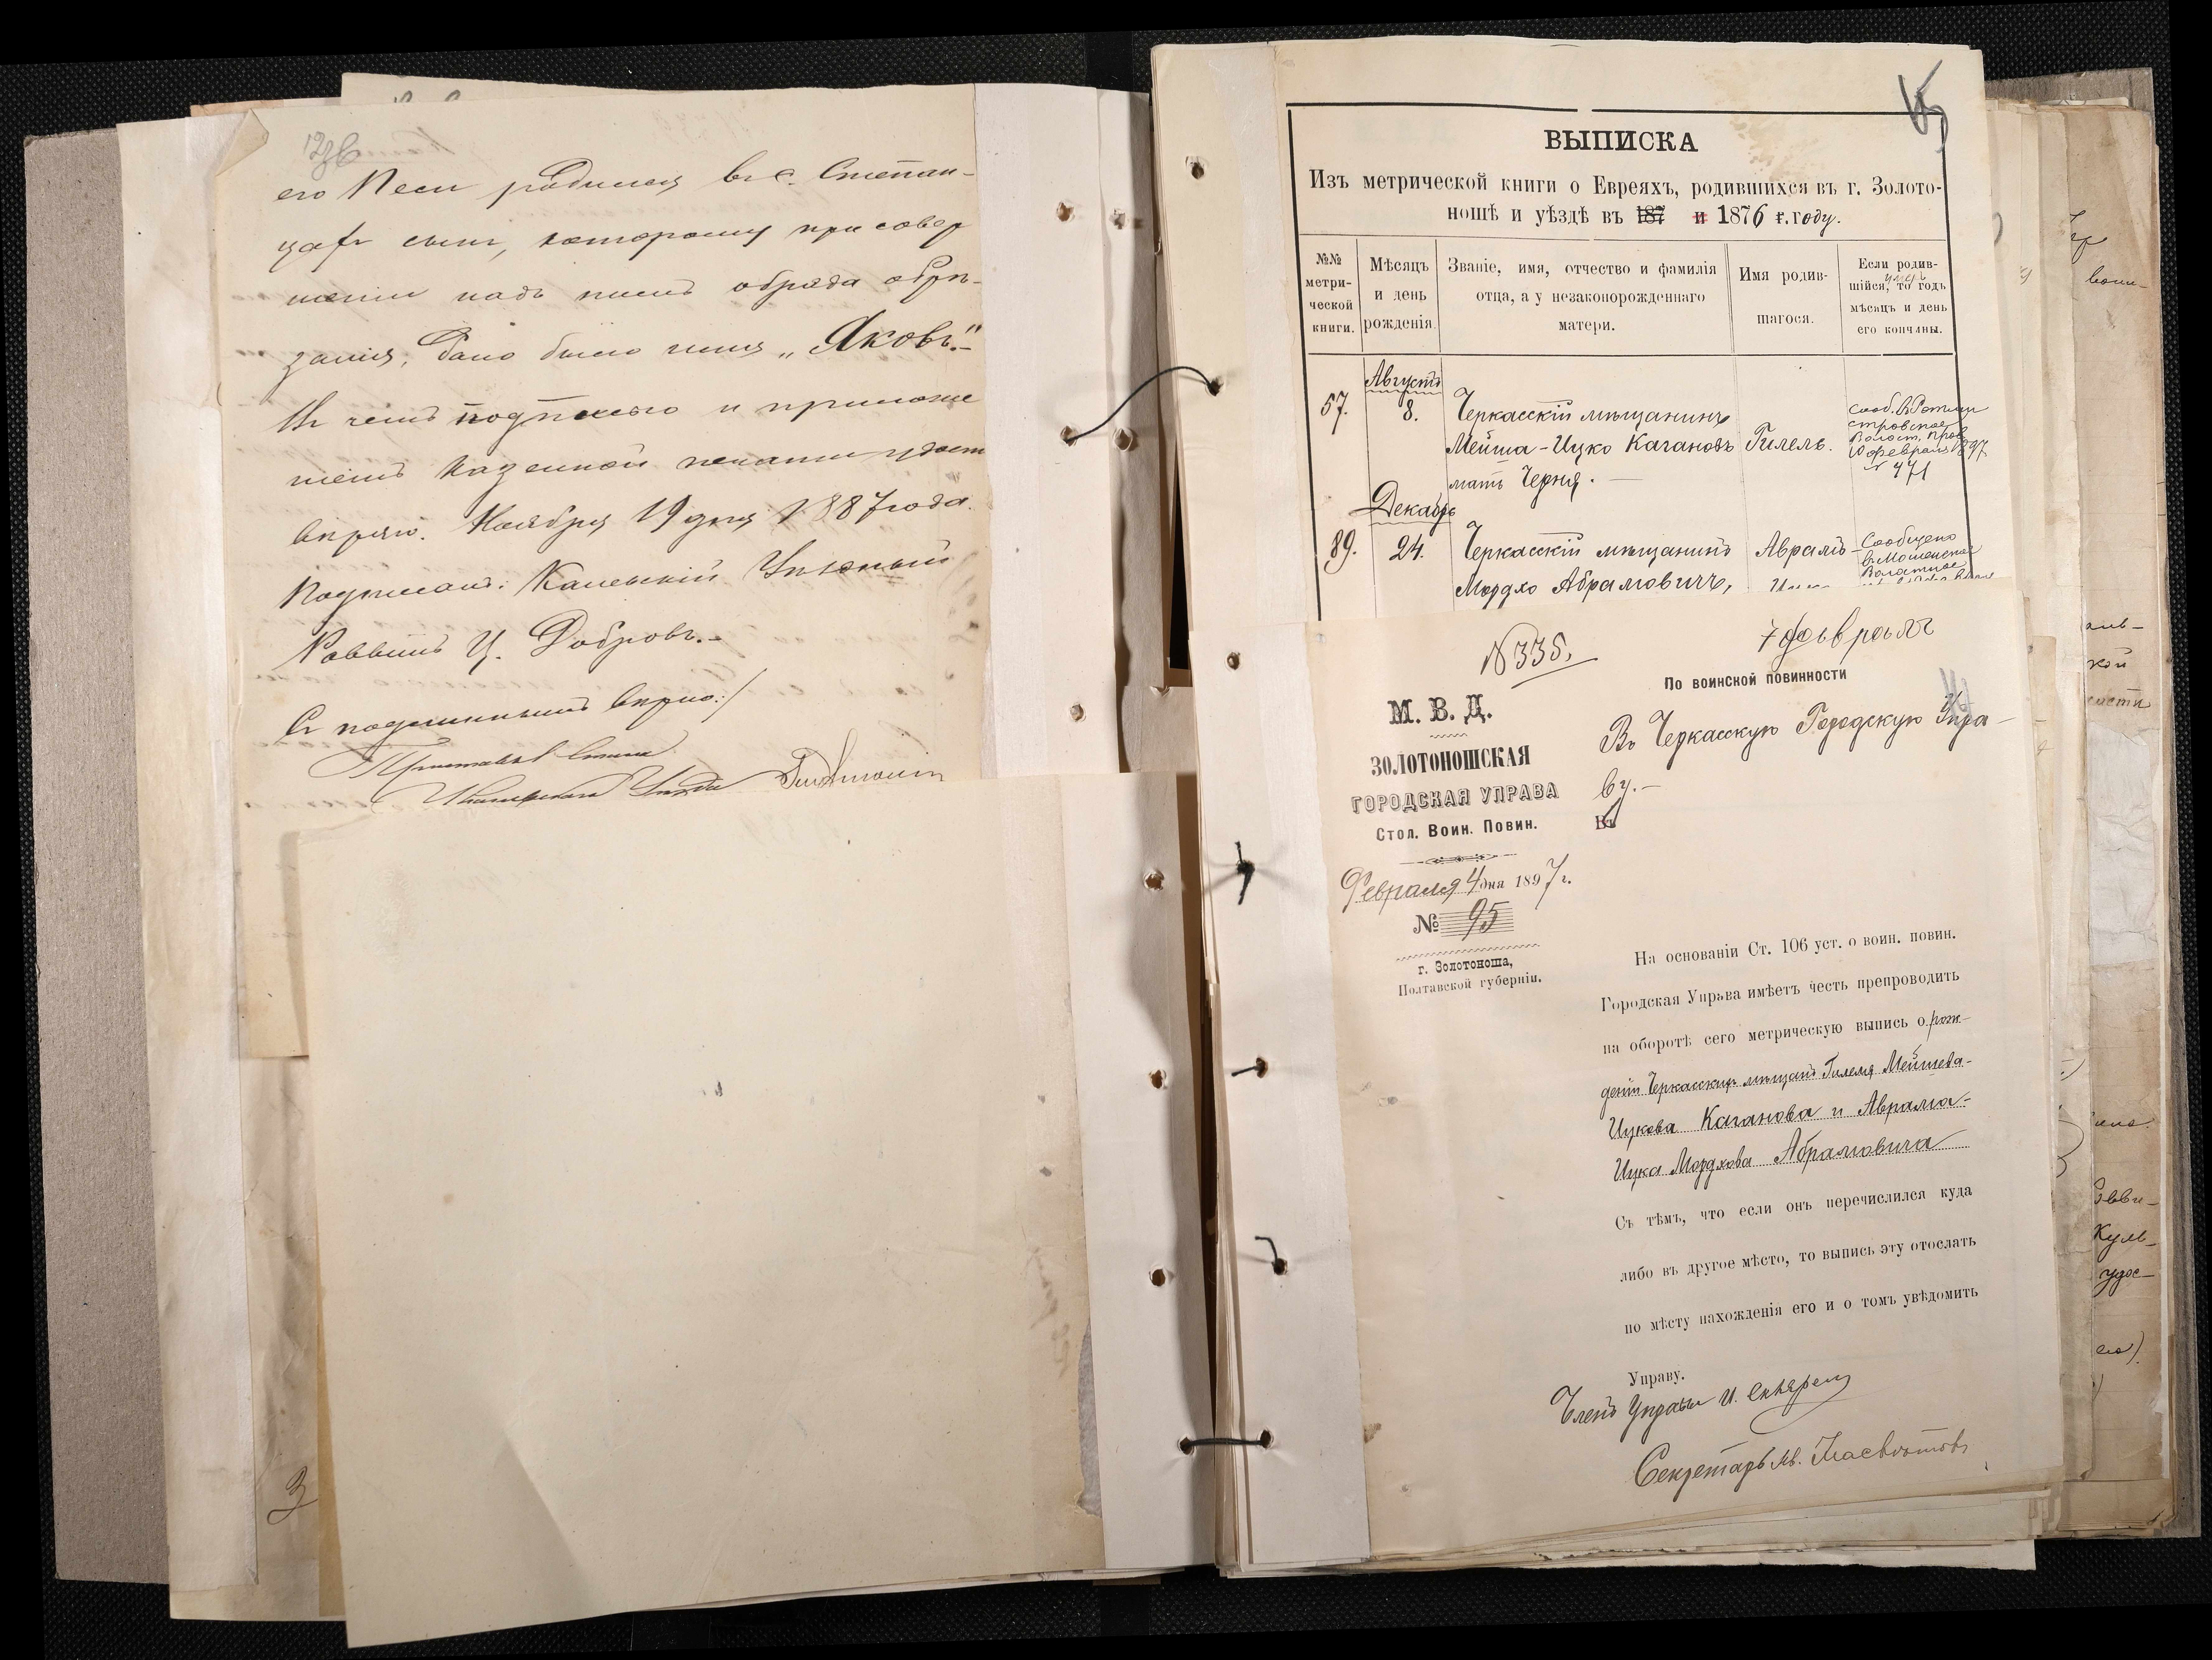 его Песи родился в с. Степан-
цах сынъ, которому при совер
шеніи надъ нимъ обряда обрѣ-
занія, дано было имя „Яковъ".-
Въ чемъ подписью и приложе
ніемъ казенной печати удост
вѣряю. Ноября 19 дня 1887 года.
Подписалъ: Каневскій Уѣздный
Раввинъ Ц. Добровъ.-
Съ подлиннымъ вѣрно:/
Приставъ Стана
Уѣзда
3
ВЫПИСКА
Изъ метрической книги о Евреяхъ, родившихся въ г. Золото-
ношѣ и уѣздѣ въ 187 и 1876 г. году.
№№ метри-ческой книги.
Мѣсяцъ и день рожденія.
Званіе, имя, отчество и фамилія отца, а у незаконорожденнаго матери.
Имя родив-шагося.
Если родив-шійся, умеръ то годъ мѣсяцъ и день его кончины.
Августъ
57. 8. Черкасскій мѣщанинъ
Мейша-Ицко Кагановъ Гилель.
мать Черня. —
сооб. в Ротми
стровское
Волост. Прав
10 февраля 1897
№ 471
Декабрь
89. 24. Черкасскій мѣщанинъ Аврамъ-
Мордхо Абрамовичъ,
Сообщено
в Мошенское
Волостное
№335.
7 февраля
По воинской повинности
М. В. Д.
ЗОЛОТОНОШСКАЯ
ГОРОДСКАЯ УПРАВА
Стол. Воин. Повин.
Февраля 4 дня 1897 г.
№ 95
г. Золотоноша,
Полтавской губерніи.
Въ Черкасскую Городскую Упра-
ву.-
Въ
На основаніи Ст. 106 уст. о воин. повин.
Городская Управа имѣетъ честь препроводить
на оборотѣ сего метрическую выпись о рож-
деніи Черкасскихъ мѣщанъ Гилеля Мейшева-
Ицкова Каганова и Аврама-
Ицка Мордхова Абрамовича
Съ тѣмъ, что если онъ перечислился куда
либо въ другое мѣсто, то выпись эту отослать
по мѣсту нахожденія его и о томъ увѣдомить
Управу.
Членъ Управы И.
Секретарь